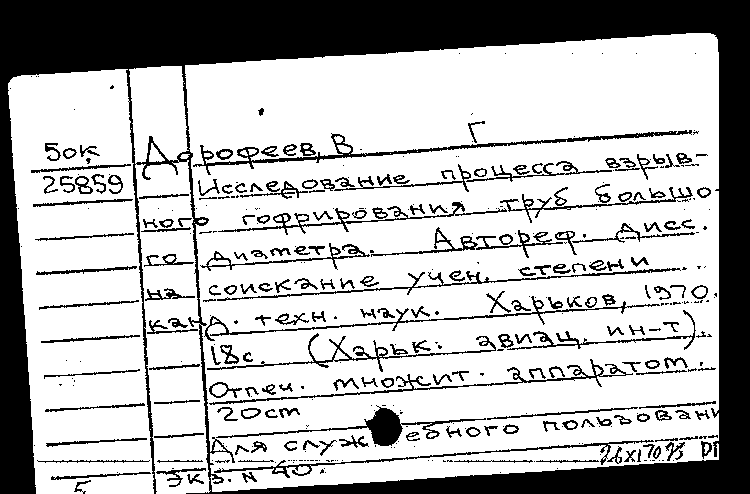 50к Дорофеев, В. Г
25859 Исследование процесса взрыв-
ного гофрирования труб большо-
го диаметра. Автореф. дисс.
на соискание учен. степени
канд. техн. наук. Харьков, 1970.
18с. (Харьк. авиац. ин-т).
Отпеч. множит. аппаратом.
20см
Для служебного пользовани
экз. N 40.